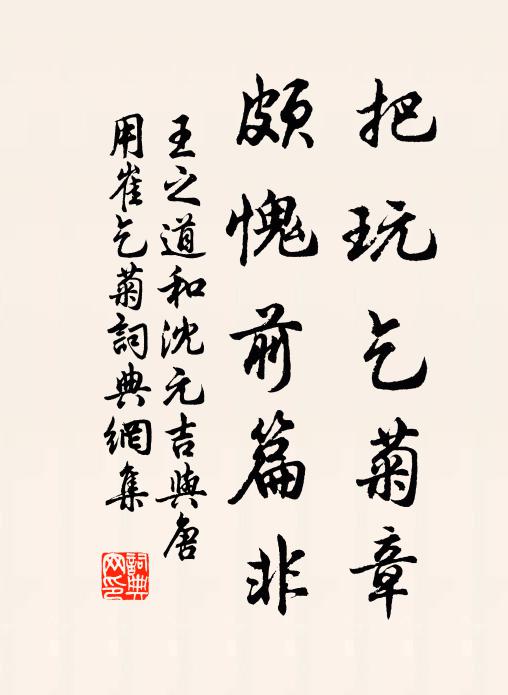 把玩乞菊章
頗愧前篇非
王之道和沈元吉與唐
用崔乞菊詞典網集
詞典網印